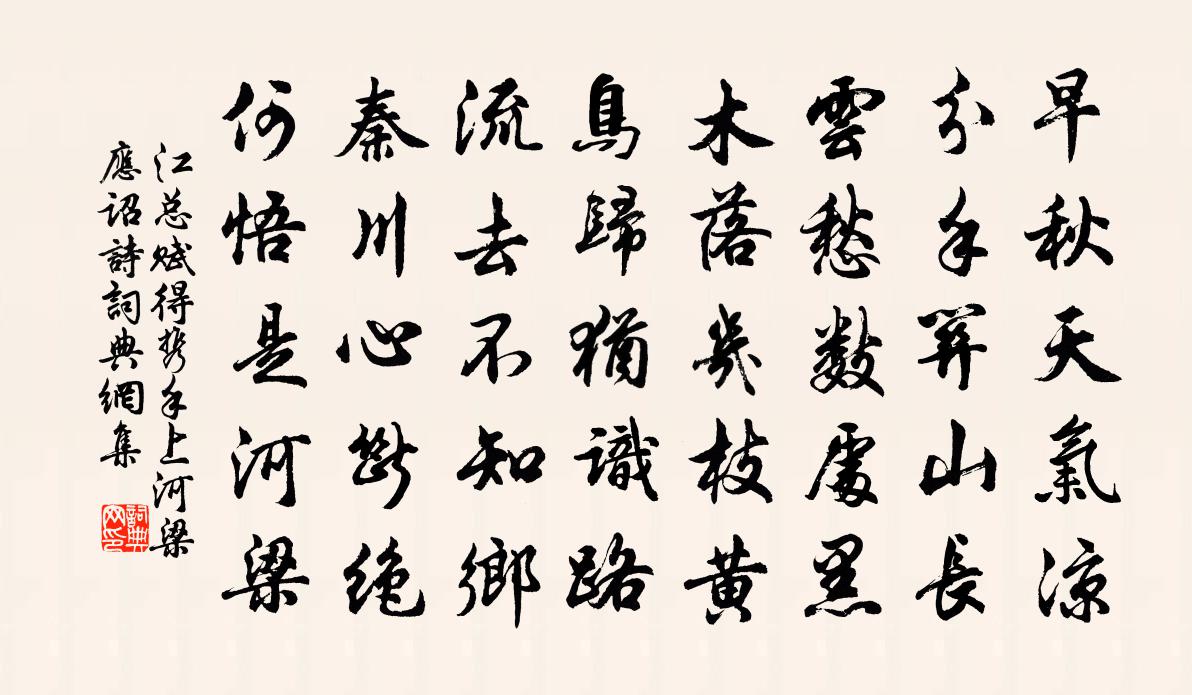 早秋天氣涼
分手關山長
雲愁數處黑
木落幾枝黃
鳥歸猶識路
流去不知鄉
秦川心斷絶
何悟是河梁
江总赋得携手上河梁
應诏詩詞典網集
詞典网印